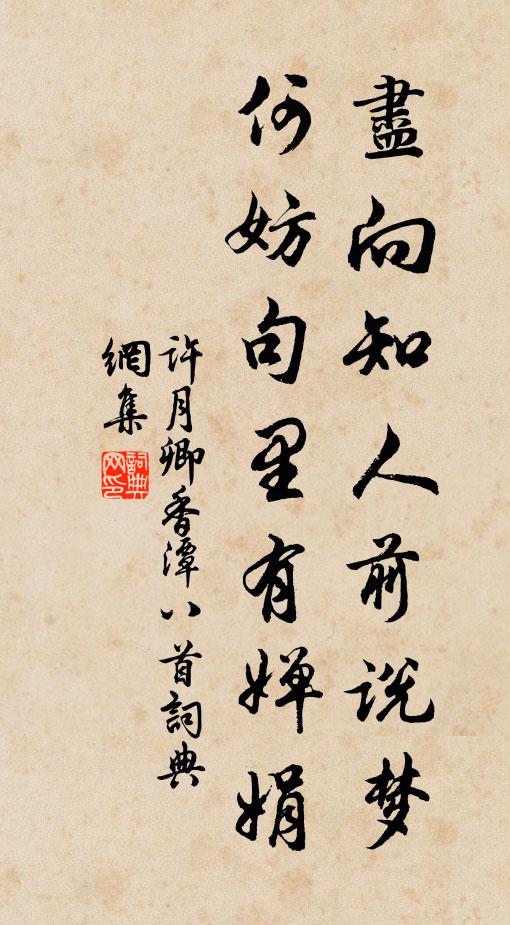 盡向知人前説梦
何妨句里有嬋娟
许月卿香潭八首詞典
網集
詞典网印